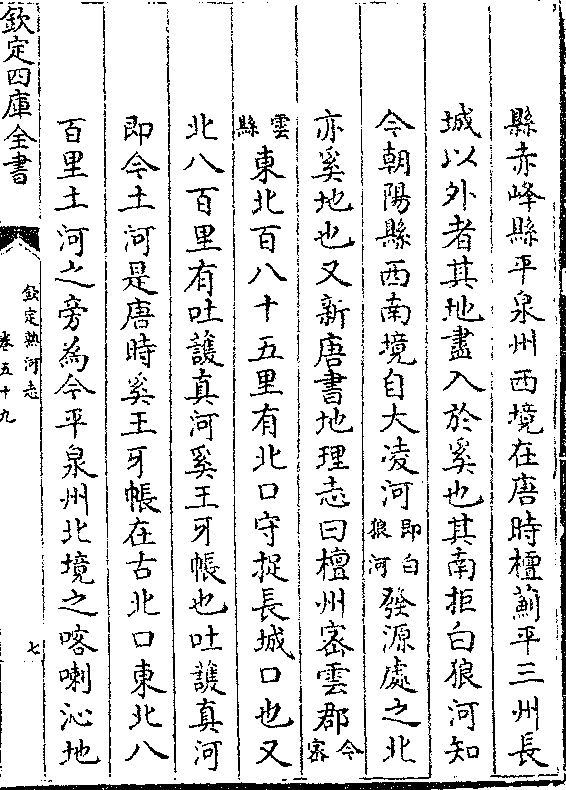 縣赤峰縣平泉州西境在唐時檀薊平三州長
城以外者其地盡入於奚也其南拒白狼河知
今朝陽縣西南境自大凌河即白狼河發源處之北
亦奚地也又新唐書地理志曰檀州密雲郡今密
雲縣東北百八十五里有北口守捉長城口也又
北八百里有吐護真河奚王牙帳也吐護真河
即今土河是唐時奚王牙帳在古北口東北八
百里土河之旁為今平泉州北境之喀喇沁地
欽定四庫全書
欽定熱河志
卷五十九
七